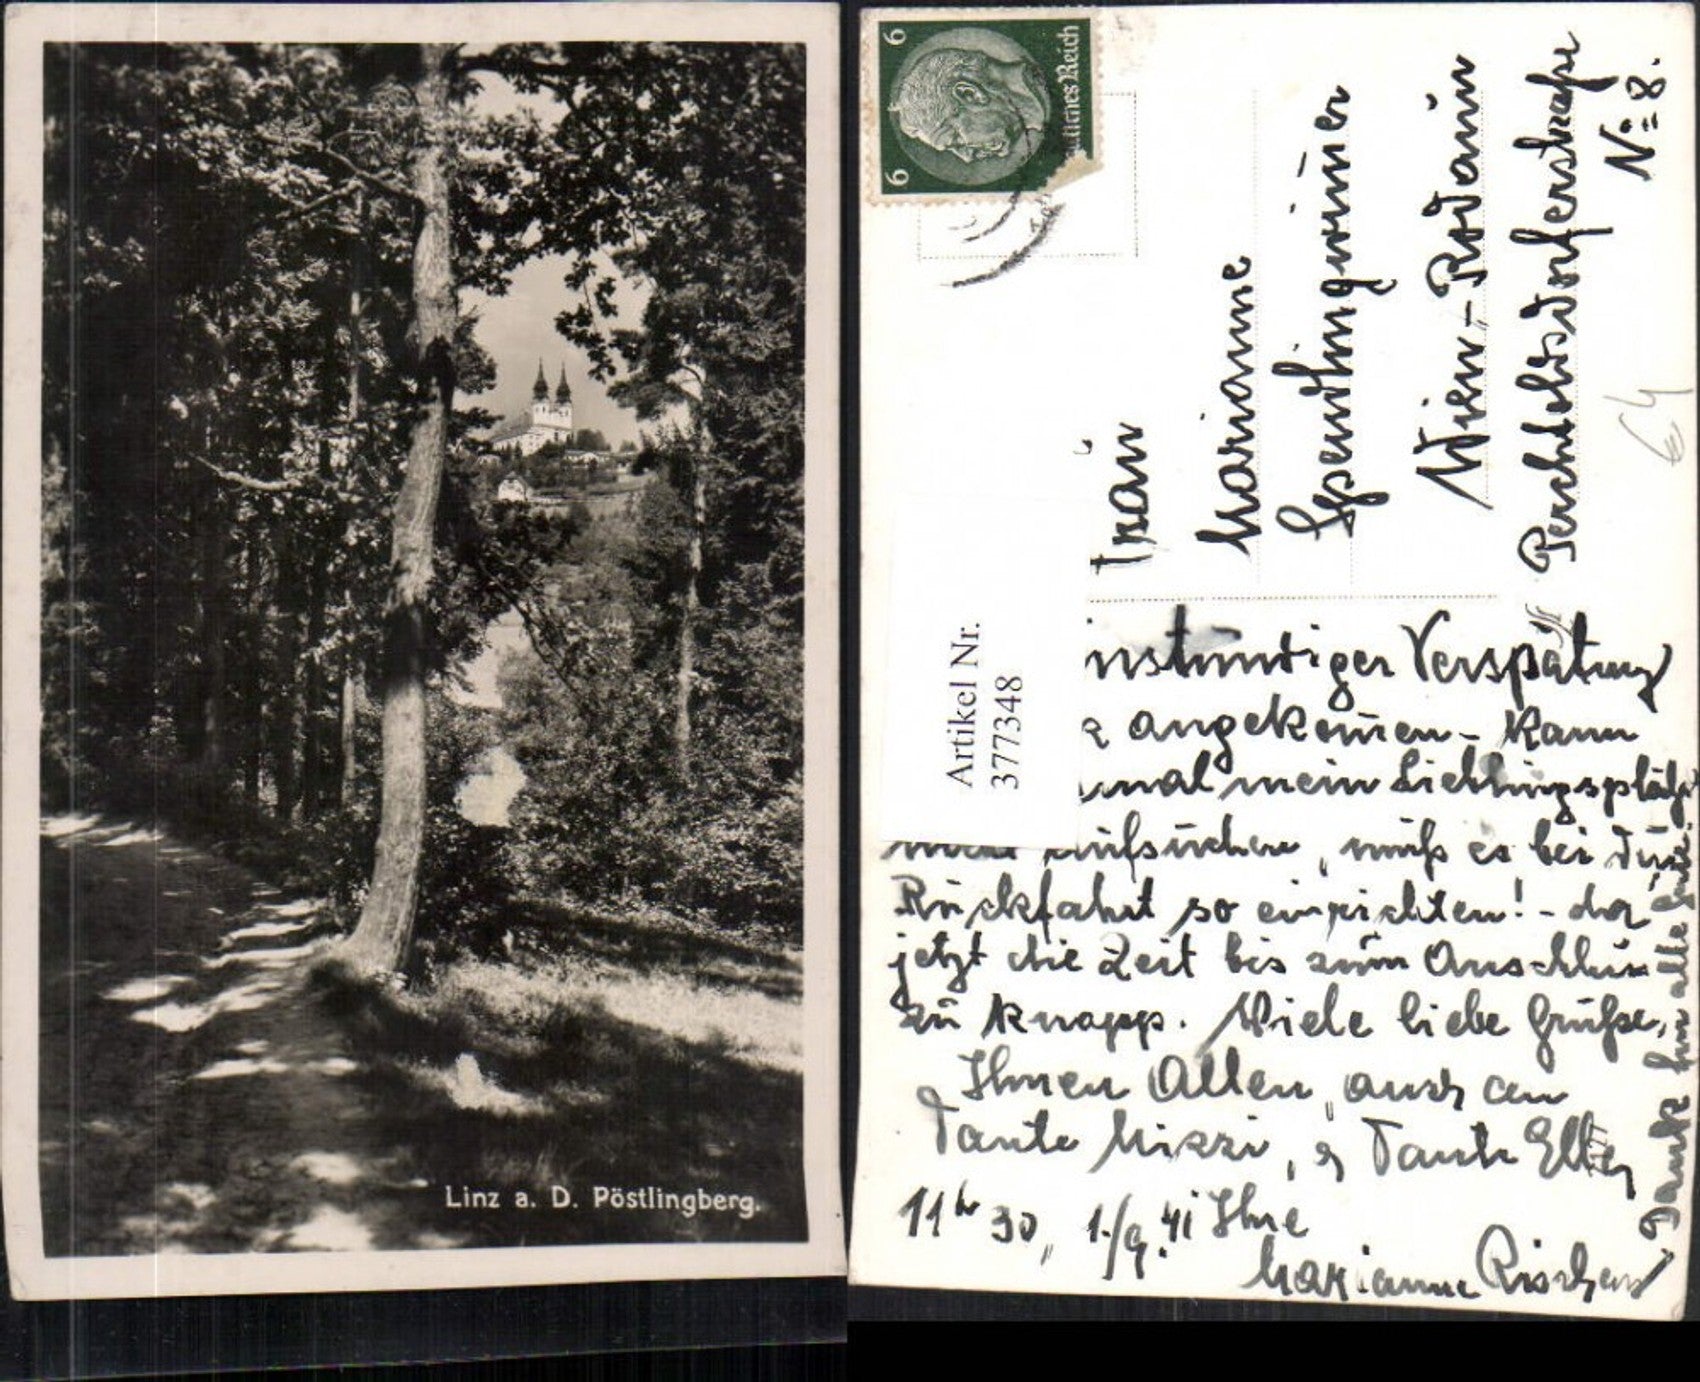 Linz a. D. Pöstlingberg.
6
6
Deutsches Reich
Frau
Marianne
Wien-Rodaun
Perchtoldsdorferstraße
No 8.
Artikel Nr.
377348
nstündiger Verspätung
angekommen - kann
mal mein Lieblingsplätz
nicht aufsuchen, muß es bei
Rückfahrt so einrichten! - da
jetzt die Zeit bis zum Anschluss
zu knapp. Viele liebe Grüße,
Ihnen Allen, auch an
Tante Mizzi, & Tante Ella
11h 30, 1./9.41 Ihre
Marianne
Dank für alle